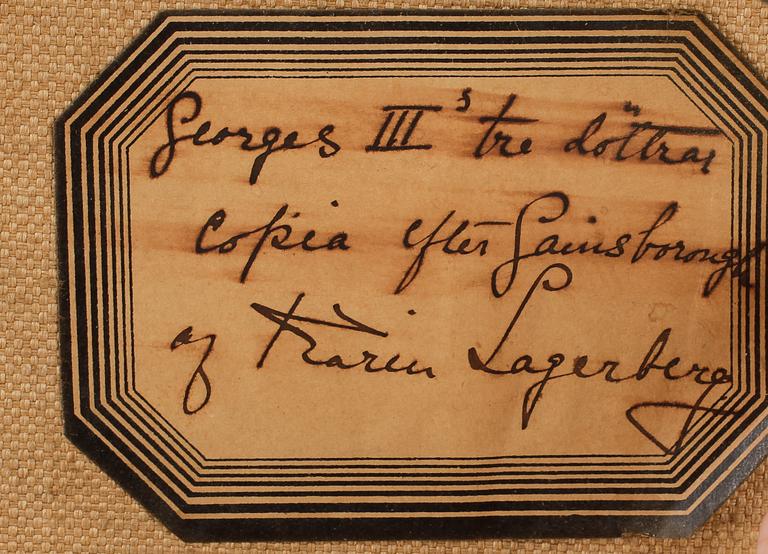 Georges III s tre döttrar
copia efter Gainsborough
af Karin Lagerberg